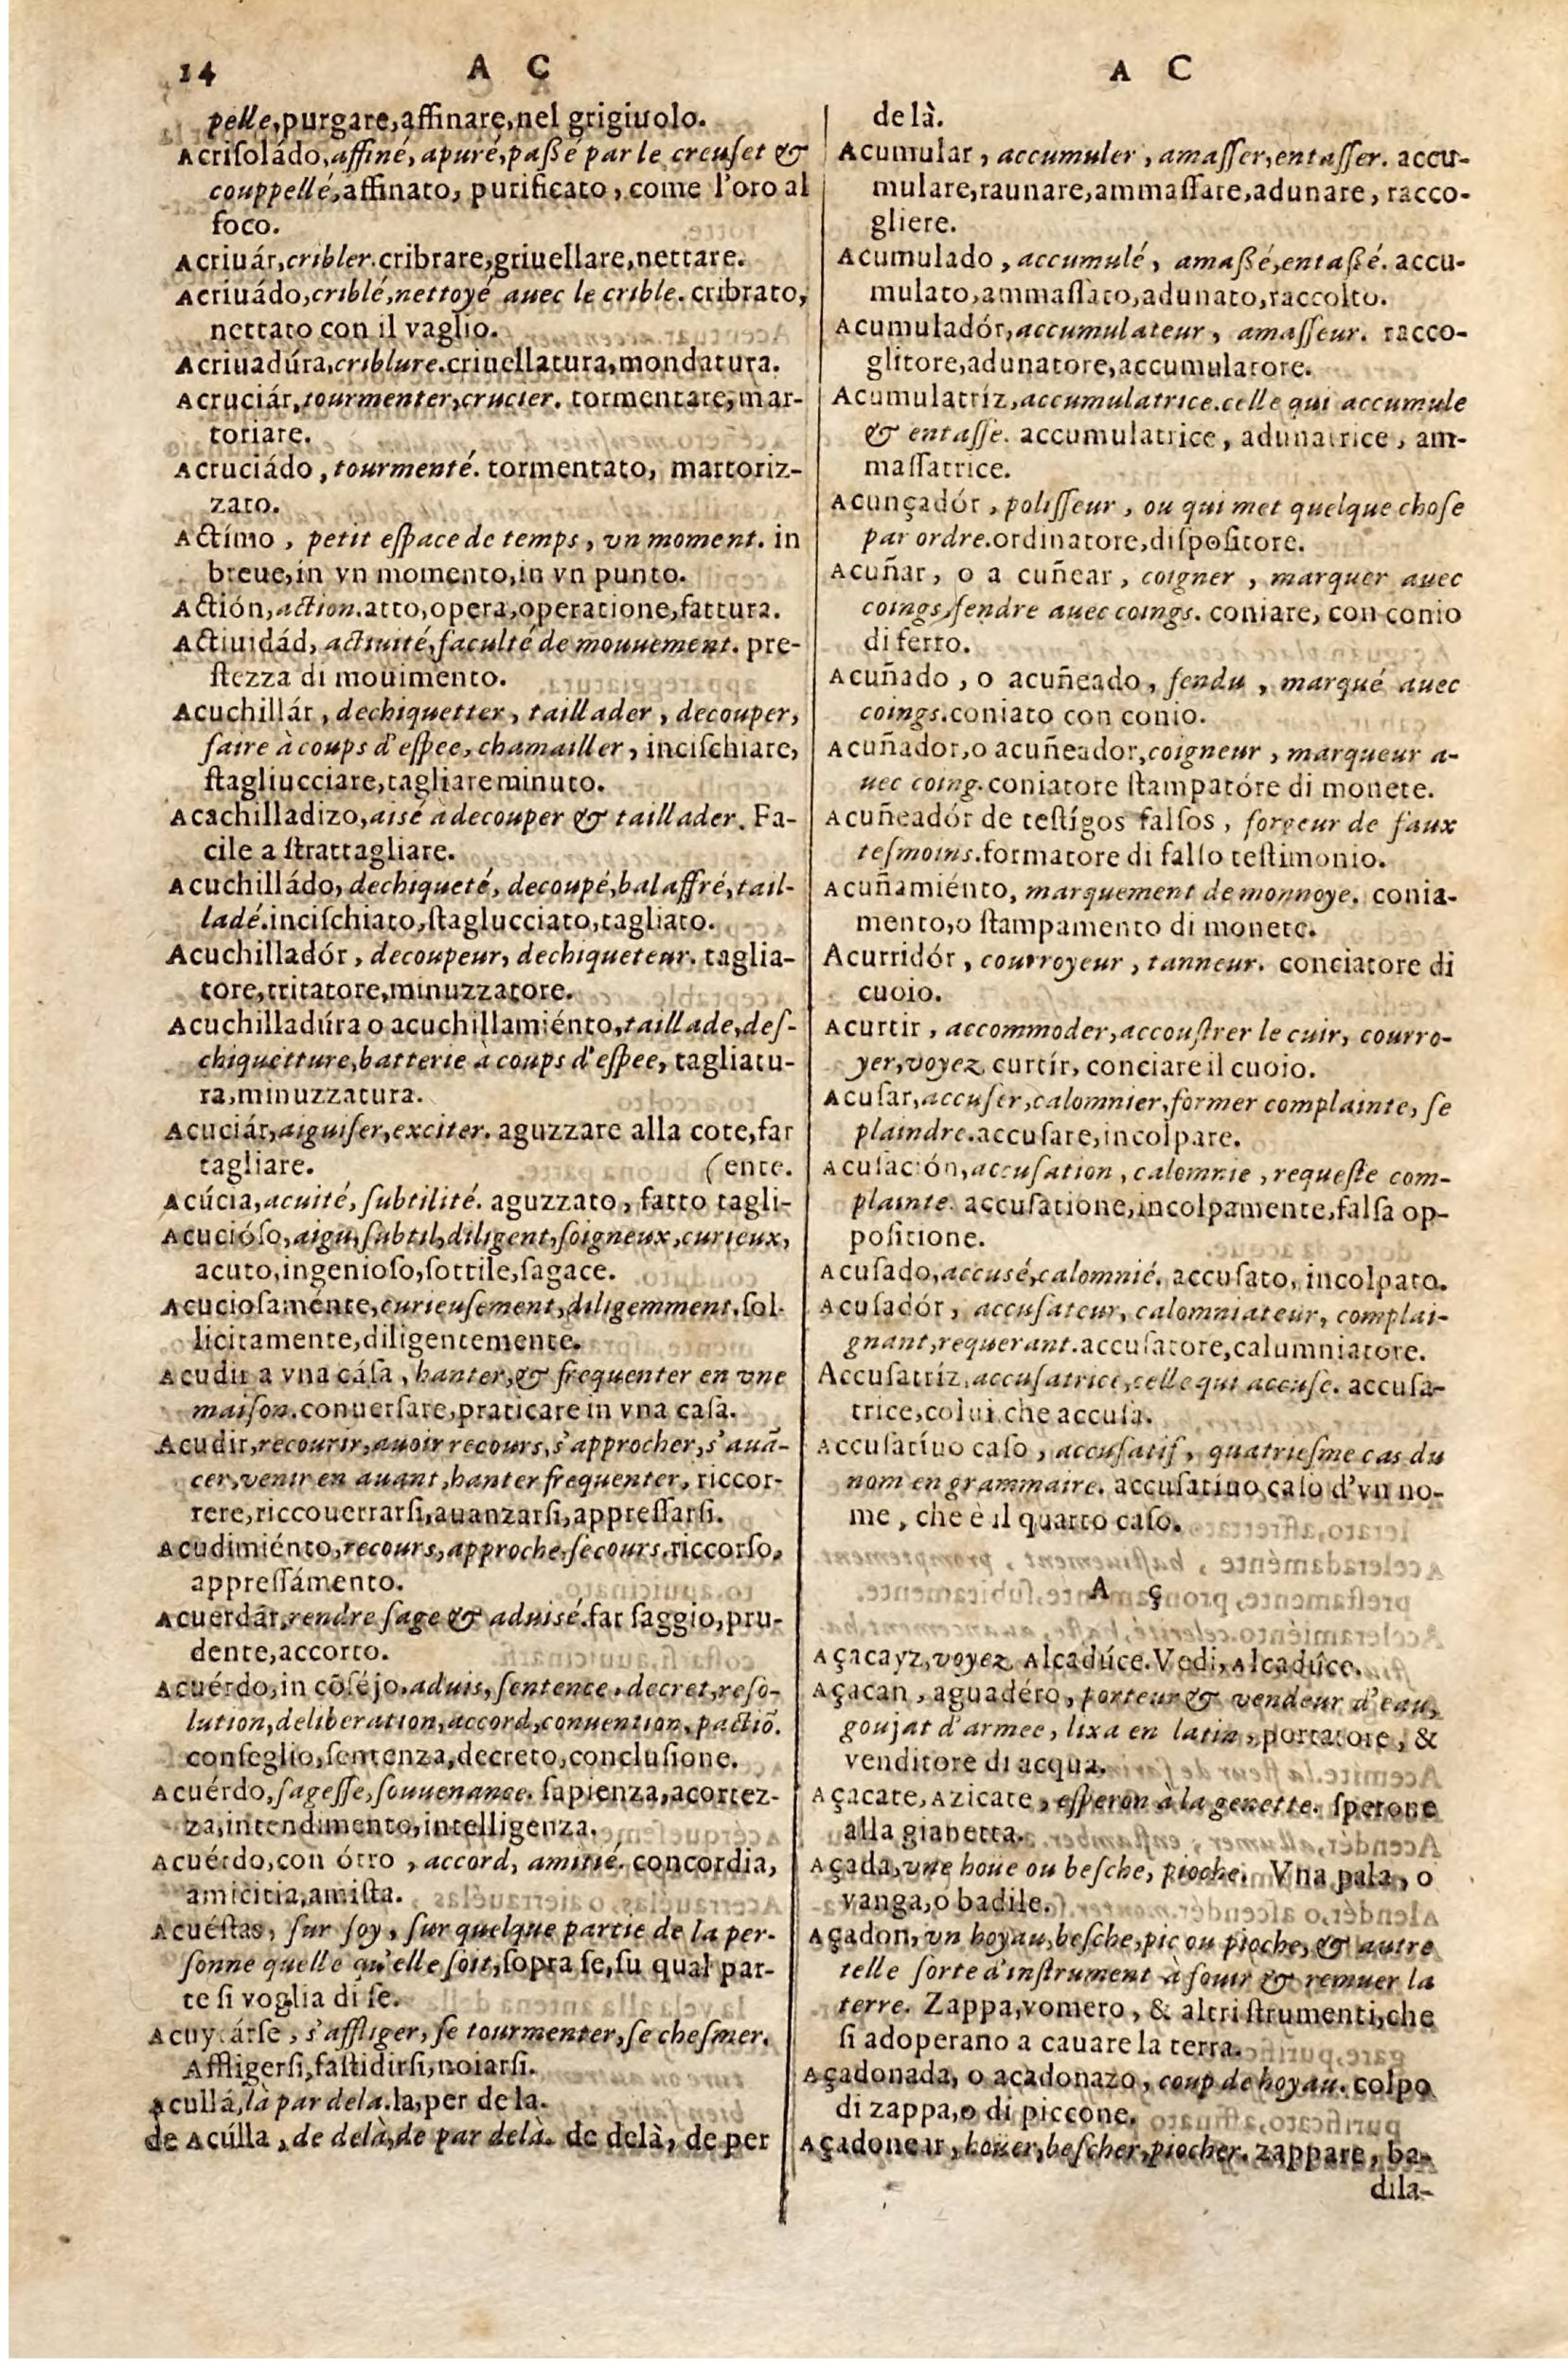 14 A C
pelle,purgare,affinare,nel grigiuolo.
Acriſoládo,affiné, apuré,paßé par le creuſet &
couppellé,affinato, purificato, come l'oro al
foco.
Acriuár,cribler.cribrare,griuellare,nettare.
Acriuádo,criblé,nettoyé auec le crible. cribrato,
nettato con il vaglio.
Acriuadúra,criblure.criuellatura,mondatura.
Acruciár,tourmenter,crucier. tormentare,mar-
toriare.
Acruciádo, tourmenté. tormentato, martoriz-
zato.
Actímo, petit eſpace de temps, vn moment. in
breue,in vn momento,in vn punto.
Actión,action.atto,opera,operatione,fattura.
Actiuidád, actiuité,faculté de mouuement. pre-
ſtezza di mouimento.
Acuchillár, dechiquetter, taillader, decouper,
faire à coups d'eſpee, chamailler, inciſchiare,
ſtagliucciare,tagliare minuto.
Acachilladizo,aisé à decouper & taillader. Fa-
cile a ſtrattagliare.
Acuchilládo, dechiqueté, decoupé,balaffré,tail-
ladé.inciſchiato,ſtaglucciato,tagliato.
Acuchilladór, decoupeur, dechiqueteur. taglia-
tore,tritatore,minuzzatore.
Acuchilladúra o acuchillamiénto,taillade,deſ-
chiquetture,batterie à coups d'eſpee, tagliatu-
ra,minuzzatura.
Acuciár,aiguiſer,exciter. aguzzare alla cote,far
tagliare. (ente.
Acúcia,acuité, ſubtilité. aguzzato, fatto tagli-
Acucióſo,aigu,ſubtil,diligent,ſoigneux,curieux,
acuto,ingenioſo,ſottile,ſagace.
Acucioſaménte,curieuſement,diligemment.ſol-
licitamente,diligentemente.
Acudir a vna cáſa, hanter,& frequenter en vne
maiſon.conuerſare,praticare in vna caſa.
Acudir,recourir,auoir recours,s'approcher,s'auã-
cer,venir en auant,hanter frequenter, riccor-
rere,riccouerrarſi,auanzarſi,appreſſarſi.
Acudimiénto,recours,approche,ſecours.riccorſo,
appreſſámento.
Acuerdár,rendre ſage & aduisé.far ſaggio,pru-
dente,accorto.
Acuérdo,in cõſéjo.aduis, ſentence, decret,reſo-
lution,deliberation,accord,conuention, pactiõ.
conſeglio,ſentenza,decreto,concluſione.
Acuérdo,ſageſſe,ſouuenance. ſapienza,acortez-
za,intendimento,intelligenza.
Acuérdo,con ótro, accord, amitié. concordia,
amicitia,amiſta.
Acuéſtas, ſur ſoy, ſur quelque partie de la per-
ſonne quelle qu'elle ſoit,ſopra ſe,ſu qual par-
te ſi voglia di ſe.
s'affliger, ſe tourmenter,ſe cheſmer.
Affligerſi,faſtidirſi,noiarſi.
aculla,là par dela.la,per de la.
de Acúlla, de delà,de par delà. de delà, de per
A C
de là.
Acumular, accumuler, amaſſer,entaſſer. accu-
mulare,raunare,ammaſſare,adunare, racco-
gliere.
Acumulado, accumulé, amaßé,entaßé. accu-
mulato,ammaſſato,adunato,raccolto.
Acumuladór,accumulateur, amaſſeur. racco-
glitore,adunatore,accumulatore.
Acumulatríz,accumulatrice.celle qui accumule
& entaſſe. accumulatrice, adunatrice, am-
maſſatrice.
Acunçadór, poliſſeur, ou qui met quelque choſe
par ordre.ordinatore,diſpoſitore.
Acuñar, o a cuñear, coigner, marquer auec
coings,fendre auec coings. coniare, con conio
di ferro.
Acuñado, o acuñeado, fendu, marqué auec
coings.coniato con conio.
Acuñador,o acuñeador,coigneur, marqueur a-
uec coing.coniatore ſtampatóre di monete.
Acuñeadór de teſtígos falſos, forgeur de faux
teſmoins.formatore di falſo teſtimonio.
Acuñamiénto, marquement de monnoye. conia-
mento,o ſtampamento di monete.
Acurridór, courroyeur, tanneur. conciatore di
cuoio.
Acurtir, accommoder,accouſtrer le cuir, courro-
yer,voyez curtír, conciare il cuoio.
Acuſar,accuſer,calomnier,former complainte, ſe
plaindre.accuſare,incolpare.
Acuſación,accuſation, calomnie, requeſte com-
plainte. accuſatione,incolpamente,falſa op-
poſitione.
Acuſado,accusé,calomnié. accuſato, incolpato.
Acuſadór, accuſateur, calomniateur, complai-
gnant,requerant.accuſatore,calumniatore.
Accuſatríz,accuſatrice,celle qui accuſe. accuſa-
trice,colui che accuſa.
Accuſatíuo caſo, accuſatif, quatrieſme cas du
nom en grammaire. accuſatiuo caſo d'vn no-
me, che è il quarto caſo.
A ç
Açacayz,voyez Alcadúce.Vedi,Alcadúce.
Açacan, aguadéro, porteur & vendeur d'eau,
goujat d'armee, lixa en latin, portatore, &
venditore di acqua.
Açacate, Azicate, eſperon à la genette. ſperone
alla gianetta.
Açada,vne houe ou beſche, pioche. Vna pala, o
vanga,o badile.
Açadon, vn hoyau,beſche,pic ou pioche, & autre
telle ſorte d'inſtrument à fouir & remuer la
terre. Zappa,vomero, & altri ſtrumenti,che
ſi adoperano a cauare la terra.
Açadonada, o acadonazo, coup de hoyau. colpo
di zappa,o di piccone.
Açadonear, houer,beſcher,piocher. zappare, ba-
dila-